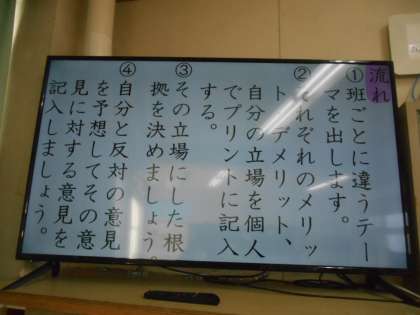 流れ
①班ごとに違うテー
マを出します。
②それぞれのメリッ
ト、デメリット、
自分の立場を個人
でプリントに記入
する。
③その立場にした根
拠を決めましょう。
④自分と反対の意見
を予想してその意
見に対する意見を
記入しましょう。